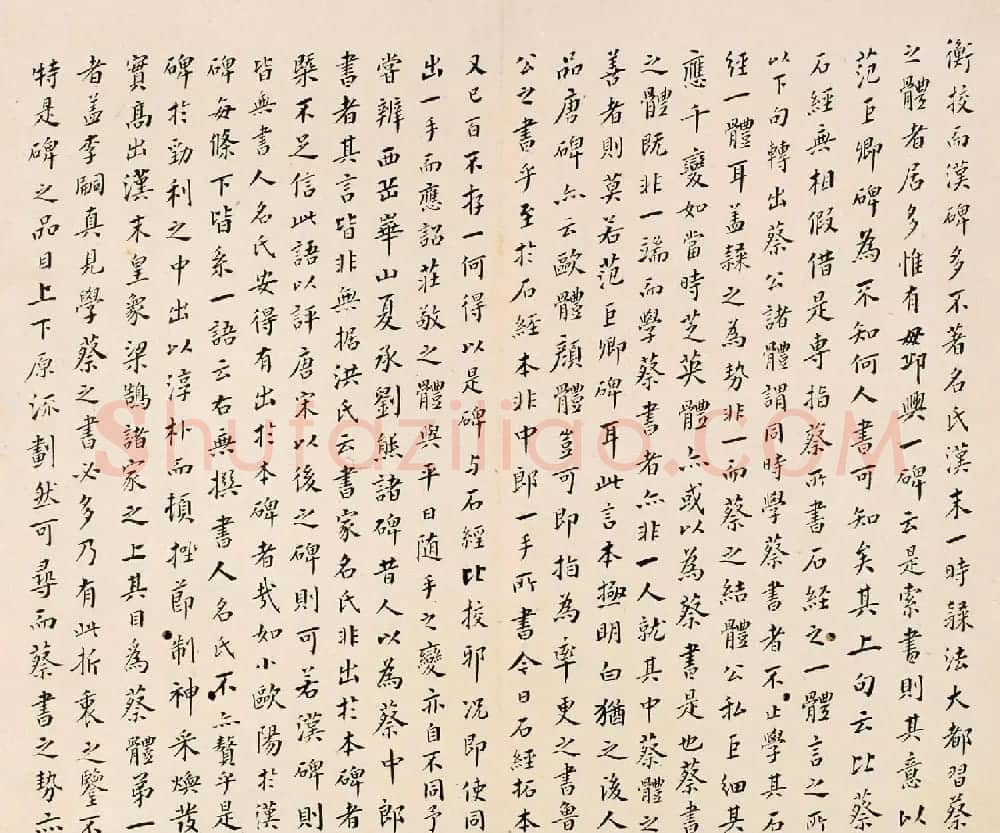 衡挍而漢碑多不著名氏漢末一時隸法大都習蔡
之體者居多惟有毋邱興一碑云是索書則其意以
范巨卿碑為不知何人書可知矣其上句云比蔡
石經無相假借是專指蔡所書石経之一體言之所
以下句轉出蔡公諸體謂同時學蔡書者不止學其石
經一體耳盖隸之為勢非一而蔡之結體公私巨細其
應千變如當時芝英體亦或以為蔡書是也蔡書
之體既非一端而學蔡書者亦非一人就其中蔡體之
善者則莫若范巨卿碑耳此言本極明白猶之後人
品唐碑亦云歐體顔體豈可即指為率更之書魯
公之書乎至於石經本非中郎一手所書今日石経拓本
又已百不存一何得以是碑与石經比挍邪况即使同
出一手而應詔莊敬之體與平日随手之變亦自不同予
嘗辨西岳華山夏承劉熊諸碑昔人以為蔡中郎
書者其言皆非無据洪氏云書家名氏非出於本碑者
槩不足信此語以評唐宋以後之碑則可若漢碑則
皆無書人名氏安得有出於本碑者哉如小歐陽於漢
碑每條下皆系一語云右無撰書人名氏不亦贅乎是
碑於勁利之中出以淳朴而頓挫節制神采煥發
實髙出漢末皇象梁鵠諸家之上其目為蔡體第一
者盖李嗣真見學蔡之書必多乃有此折衷之鑒不
特是碑之品目上下原流劃然可尋而蔡書之勢亦
Shufaziliao.COM